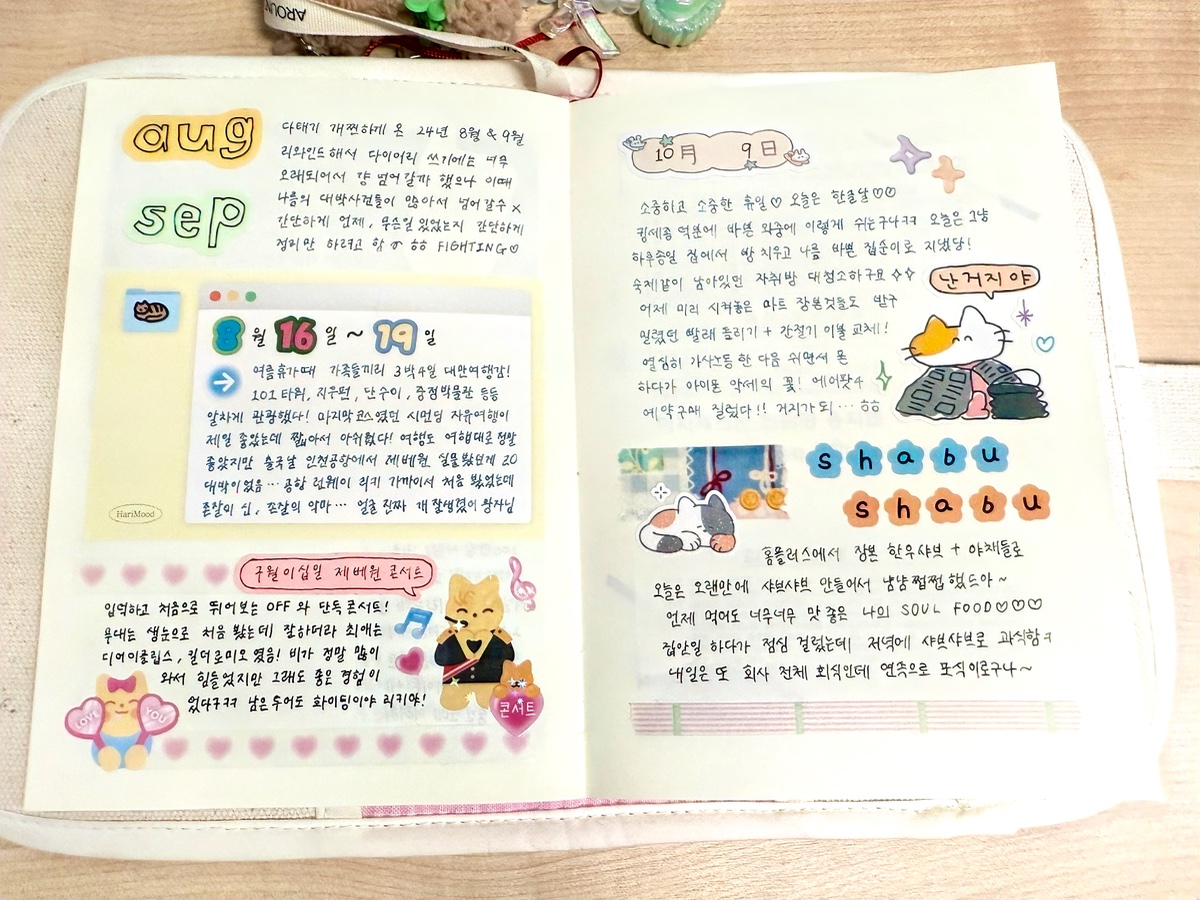 AROUN
aug
sep
다태기 개쩐하게 온 24년 8월 & 9월
리와인드해서 다이어리 쓰기에는 너무
오래되어서 걍 넘어갈까 했으나 이때
나름의 대박사건들이 많아서 넘어갈수 x
간단하게 언제, 무슨일 있었는지 간단하게
정리만 하려고 함 ㅎㅎ FIGHTING♡
8월 16일 ~ 19일
여름휴가때 가족들끼리 3박4일 대만여행감!
101타워, 지우펀, 단수이, 중정박물관 등등
알차게 관광했다! 마지막코스였던 시먼딩 자유여행이
제일 좋았는데 짧아서 아쉬웠다! 여행도 여행대로 정말
좋았지만 출국날 인천공항에서 제베원 실물봤던게 20
대박이었음… 공항 런웨이 리키 가까이서 처음 봤었는데
존잘의 신, 조각의 악마… 얼굴 진짜 개잘생겼어 왕자님
HariMood
구월이십일 제베원 콘서트
입덕하고 처음으로 뛰어보는 OFF 와 단독콘서트!
무대는 생눈으로 처음 봤는데 잘하더라 최애는
디어이클립스, 킬더로미오 였음! 비가 정말 많이
와서 힘들었지만 그래도 좋은 경험이
었다구ㅋㅋ 남은투어도 화이팅이야 리키야!
LOVE YOU
콘서트
10月 9日
소중하고 소중한 휴일♡ 오늘은 한글날♡♡
킹세종 덕분에 바쁜 와중에 이렇게 쉬는구나ㅋㅋ 오늘은 그냥
하루종일 집에서 방 치우고 나름 바쁜 집순이로 지냈당!
숙제같이 남아있던 자취방 대청소하구요✧✧
어제 미리 시켜놓은 마트 장본것들도 받구
밀렸던 빨래 돌리기 + 간절기 이불 교체!
열심히 가사노동 한 다음 쉬면서 폰
하다가 아이폰 악세의 꽃! 에어팟4
예약구매 질렀다!! 거지가 되… ㅎㅎ
난 거지야
shabu
shabu
홈플러스에서 장본 한우샤브 + 야채들로
오늘은 오랜만에 샤브샤브 만들어서 냠냠쩝쩝했드아~
언제 먹어도 너무너무 맛 좋은 나의 SOUL FOOD♡♡♡
집안일 하다가 점심 걸렀는데 저녁에 샤브샤브로 과식함ㅋ
내일은 또 회사 전체 회식인데 연속으로 포식이로구나~